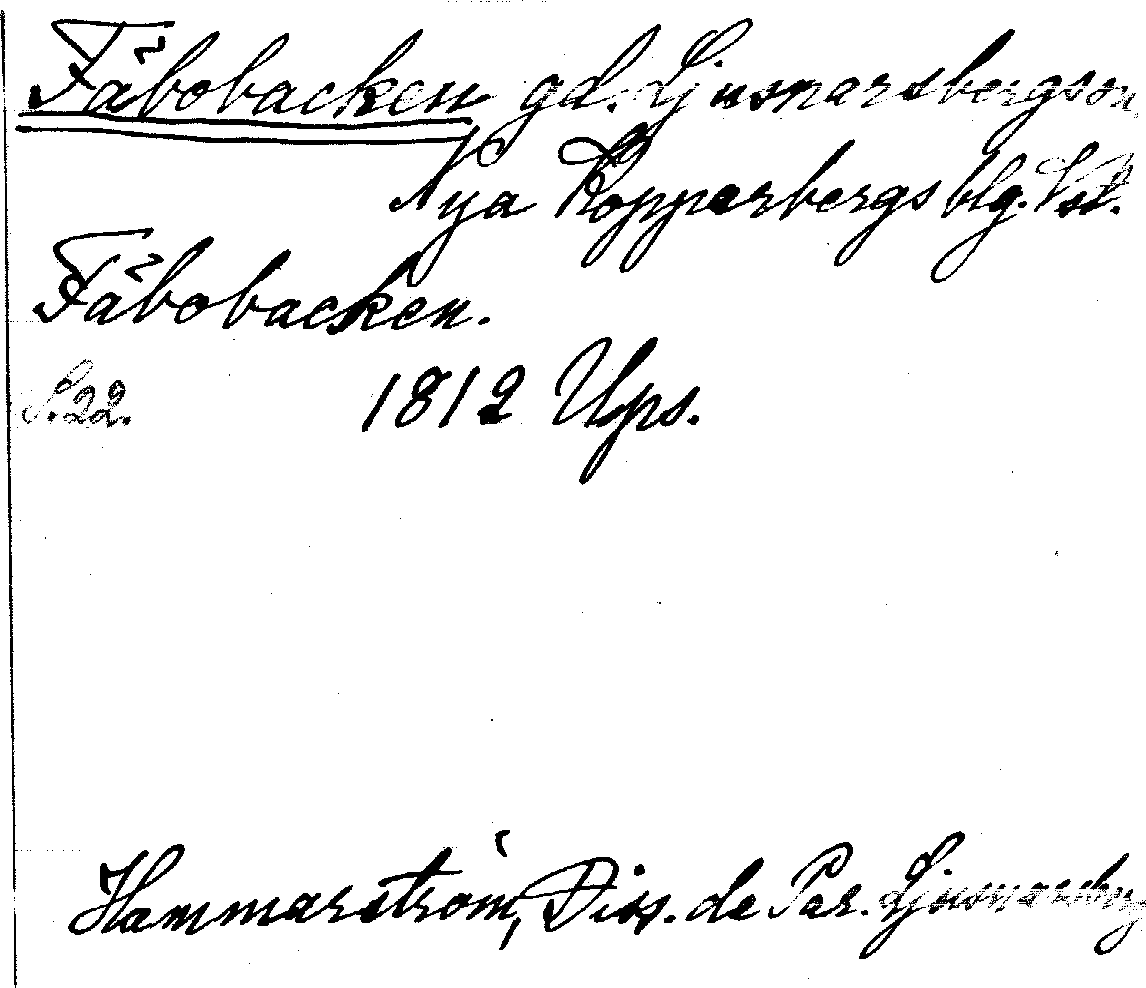 Fäbobacken gd. Ljusnarsbergs sn,
Nya Kopparbergs blg. Vstl.
Fäbobacken.
S. 22. 1812 Ups.
Hammarström, Diss. de Par. Ljusnarsberg